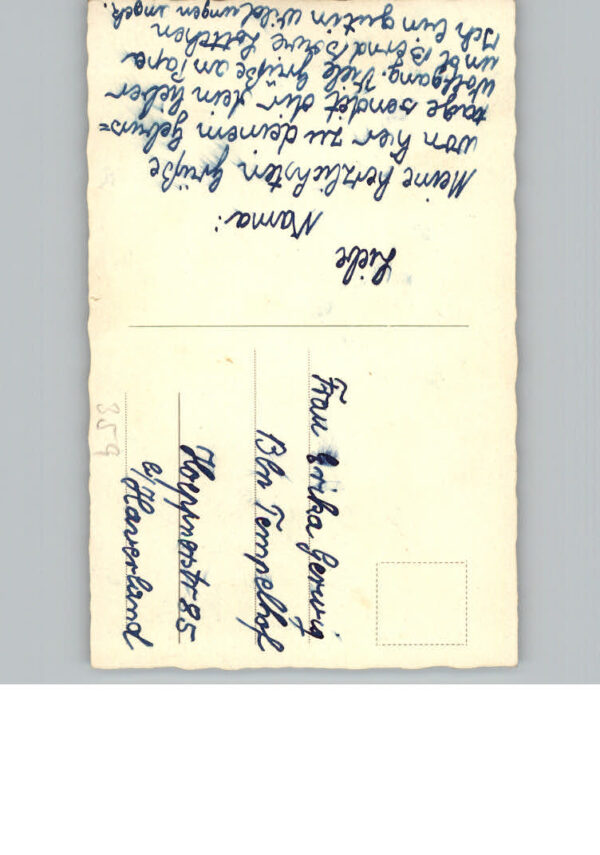 Liebe
Mama:
Meine herzlichsten grüße
von hier zu deinem geburs=
tage sendet dir dein lieber
Wolfgang. Viele grüße an Papa
und Bernd Lottchen
Ich bin gut in wildungen angek.
Frau Erika Gerwig
Bln Tempelhof
Hoppnerstr 85
b/Haverland
359